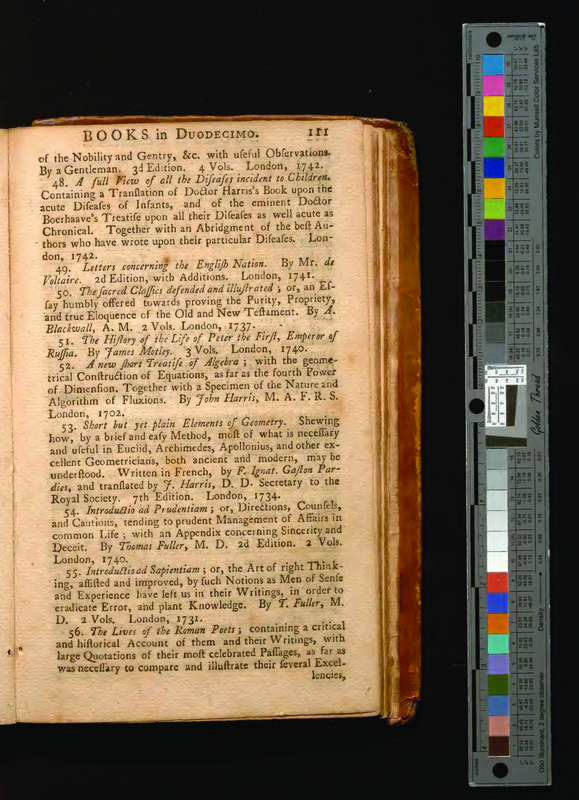 BOOKS in DUODECIMO. 111
of the Nobility and Gentry, &c. with uſeful Obſervations.
By a Gentleman. 3d Edition. 4 Vols. London, 1742.
48. A full View of all the Diſeaſes incident to Children.
Containing a Tranſlation of Doctor Harris's Book upon the
acute Diſeaſes of Infants, and of the eminent Doctor
Boerhaave's Treatiſe upon all their Diſeaſes as well acute as
Chronical. Together with an Abridgment of the beſt Au-
thors who have wrote upon their particular Diſeaſes. Lon-
don, 1742.
49. Letters concerning the Engliſh Nation. By Mr. de
Voltaire. 2d Edition, with Additions. London, 1741.
50. The ſacred Claſſics defended and illuſtrated; or, an Eſ-
ſay humbly offered towards proving the Purity, Propriety,
and true Eloquence of the Old and New Teſtament. By A.
Blackwall, A. M. 2 Vols. London, 1737.
51. The Hiſtory of the Life of Peter the Firſt, Emperor of
Ruſſia. By James Motley. 3 Vols. London, 1740.
52. A new ſhort Treatiſe of Algebra; with the geome-
trical Conſtruction of Equations, as far as the fourth Power
of Dimenſion. Together with a Specimen of the Nature and
Algorithm of Fluxions. By John Harris, M. A. F. R. S.
London, 1702.
53. Short but yet plain Elements of Geometry. Shewing
how, by a brief and eaſy Method, moſt of what is neceſſary
and uſeful in Euclid, Archimedes, Apollonius, and other ex-
cellent Geometricians, both ancient and modern, may be
underſtood. Written in French, by F. Ignat. Gaſton Par-
dies, and tranſlated by J. Harris, D. D. Secretary to the
Royal Society. 7th Edition. London, 1734.
54. Introductio ad Prudentiam; or, Directions, Counſels,
and Cautions, tending to prudent Management of Affairs in
common Life; with an Appendix concerning Sincerity and
Deceit. By Thomas Fuller, M. D. 2d Edition. 2 Vols.
London, 1740.
55. Introductio ad Sapientiam; or, the Art of right Think-
ing, aſſiſted and improved, by ſuch Notions as Men of Senſe
and Experience have left us in their Writings, in order to
eradicate Error, and plant Knowledge. By T. Fuller, M.
D. 2 Vols. London, 1731.
56. The Lives of the Roman Poets; containing a critical
and hiſtorical Account of them and their Writings, with
large Quotations of their moſt celebrated Paſſages, as far as
was neceſſary to compare and illuſtrate their ſeveral Excel-
lencies,
Colors by Munsell Color Services Lab
Golden Thread
Density
D50 Illuminant, 2 degree observer